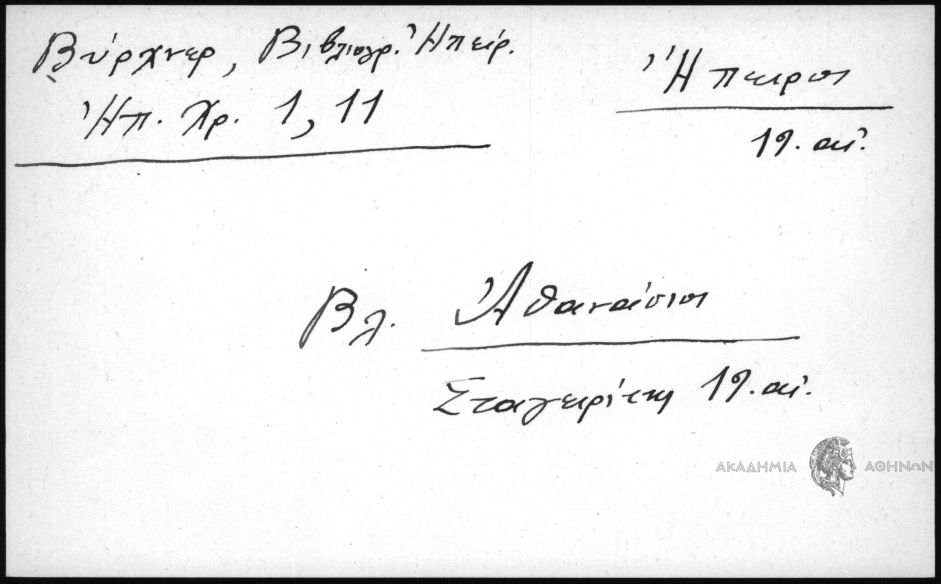 Βύρχνερ, Βιβλιογρ. Ἠπείρ.
Ἠπ. Χρ. 1, 11
Ἤπειρος
19. αἰ.
Βλ. Ἀθανάσιος
Σταγειρίτης 19. αἰ.
ΑΚΑΔΗΜΙΑ ΑΘΗΝΩΝ